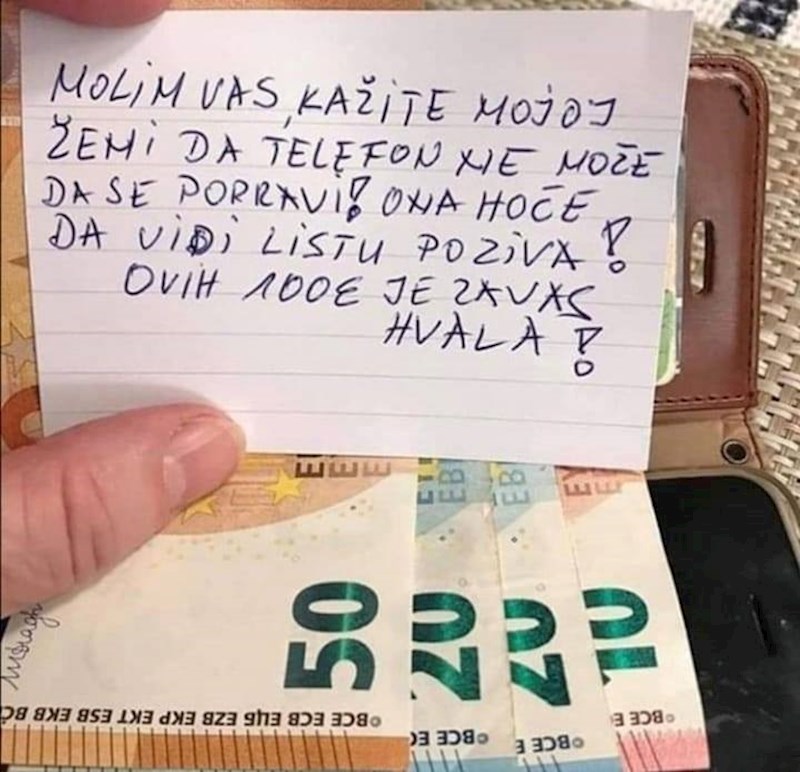 MOLIM VAS, KAŽITE MOJOJ
ŽEMI DA TELEFON NE MOŽE
DA SE POPRAVI! ONA HOČE
DA VIDI LISTU POZIVA!
OVIH 100€ JE ZA VAS
HVALA!
50
20
20
10
©BCE ECB ЕЦБ EZB EKP EKT ESB EKB
©BCE
©BCE E
©BCE E